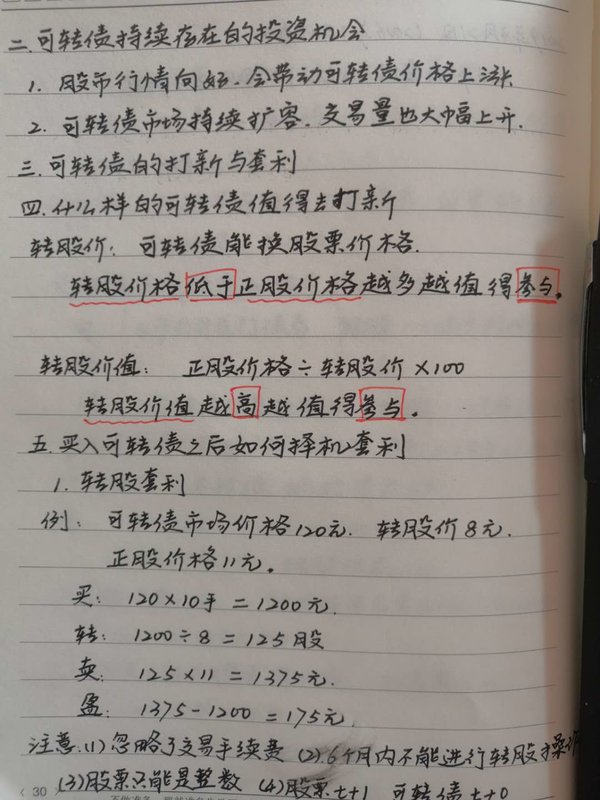 二.可转债持续存在的投资机会
1.股市行情向好.会带动可转债价格上涨.
2.可转债市场持续扩容.交易量也大幅上开.
三.可转债的打新与套利
四.什么样的可转债值得去打新
转股价:可转债能换股票价格.
转股价格低于正股价格越多越值得参与。
转股价值:正股价格÷转股价×100
转股价值越高越值得参与。
五.买入可转债之后如何择机套利
1.转股套利
例:可转债市场价格120元.转股价8元.
正股价格11元。
买:120×10手=1200元.
转:1200÷8=125股
卖:125×11=1375元.
盈:1375-1200=175元.
注意:(1)忽略了交易手续费 (2)6个月内不能进行转股操作
(3)股票只能是整数 (4)股票t+1 可转债t+0
30